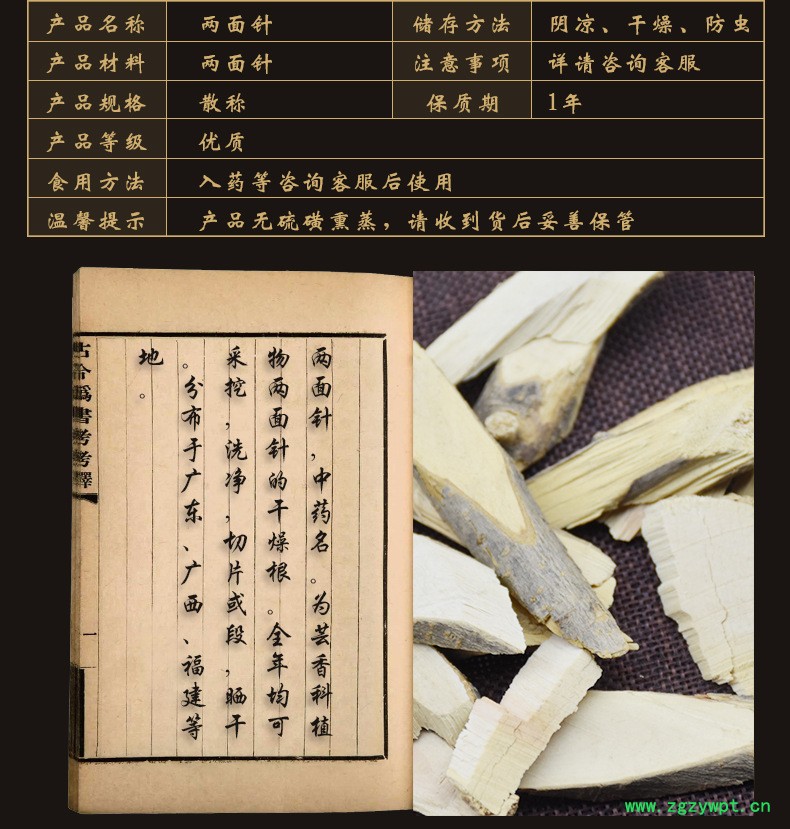 产品名称 两面针 储存方法 阴凉、干燥、防虫
产品材料 两面针 注意事项 详请咨询客服
产品规格 散称 保质期 1年
产品等级 优质
食用方法 入药等咨询客服后使用
温馨提示 产品无硫磺熏蒸，请收到货后妥善保管
两面针，中药名。为芸香科植
物两面针的干燥根。全年均可
采挖，洗净，切片或段，晒干
。分布于广东、广西、福建等
地。
古今偽書考考釋
一
www.zgzywpt.cn